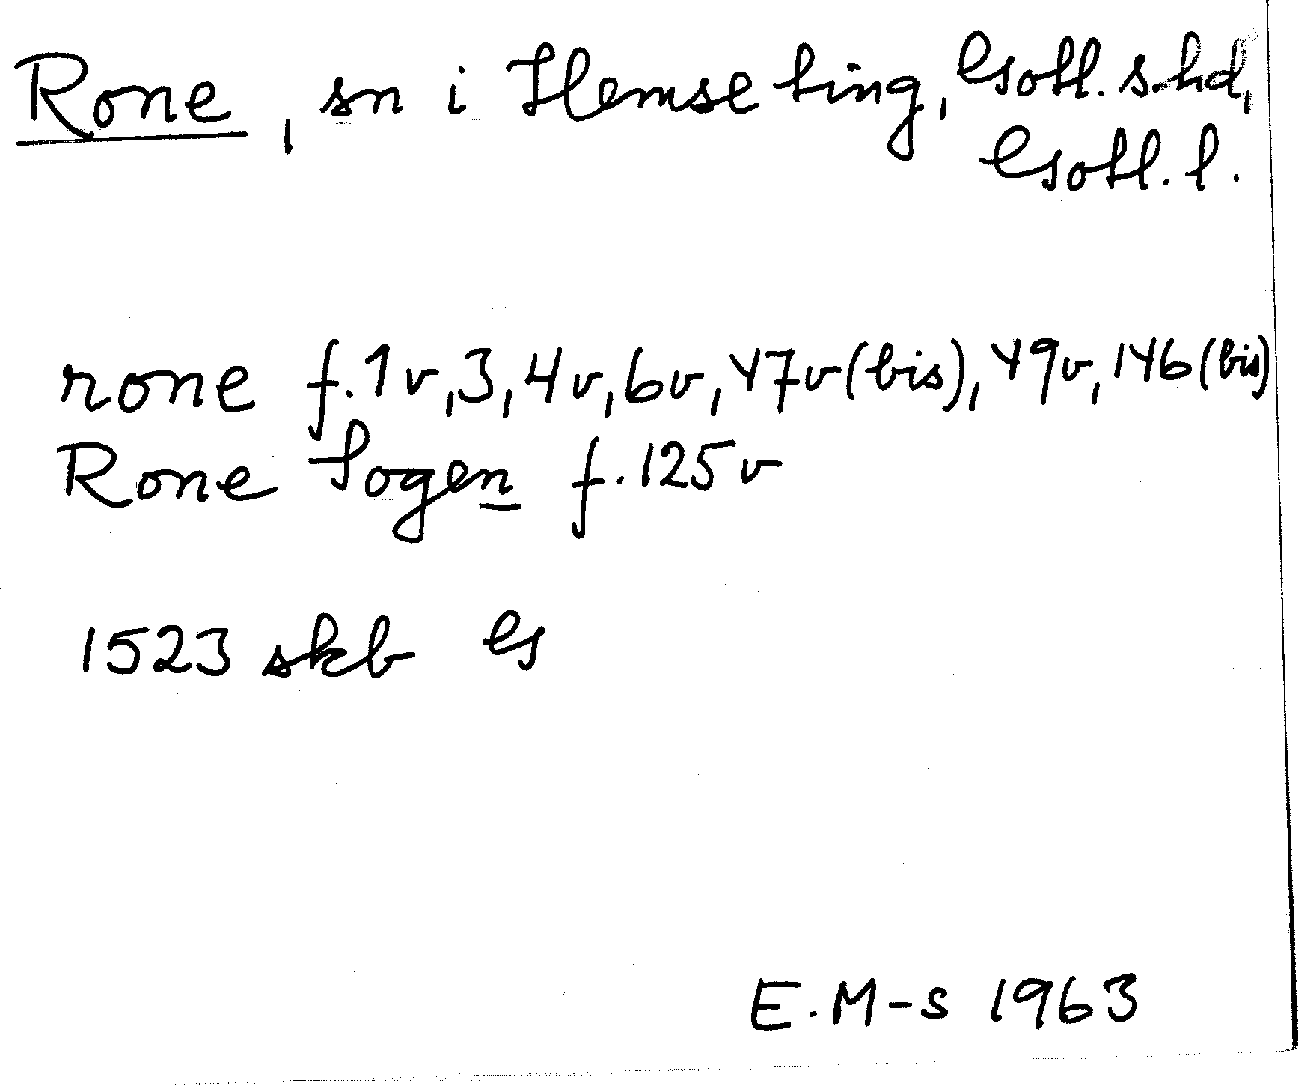 Rone, sn i Hemse ting, Gotl. s. hd,
Gotl. l.
rone f. 1v, 3, 4v, 6v, 47v (bis), 49v, 146 (bis)
Rone Sogen f. 125v
1523 skb G
E. M-s 1963